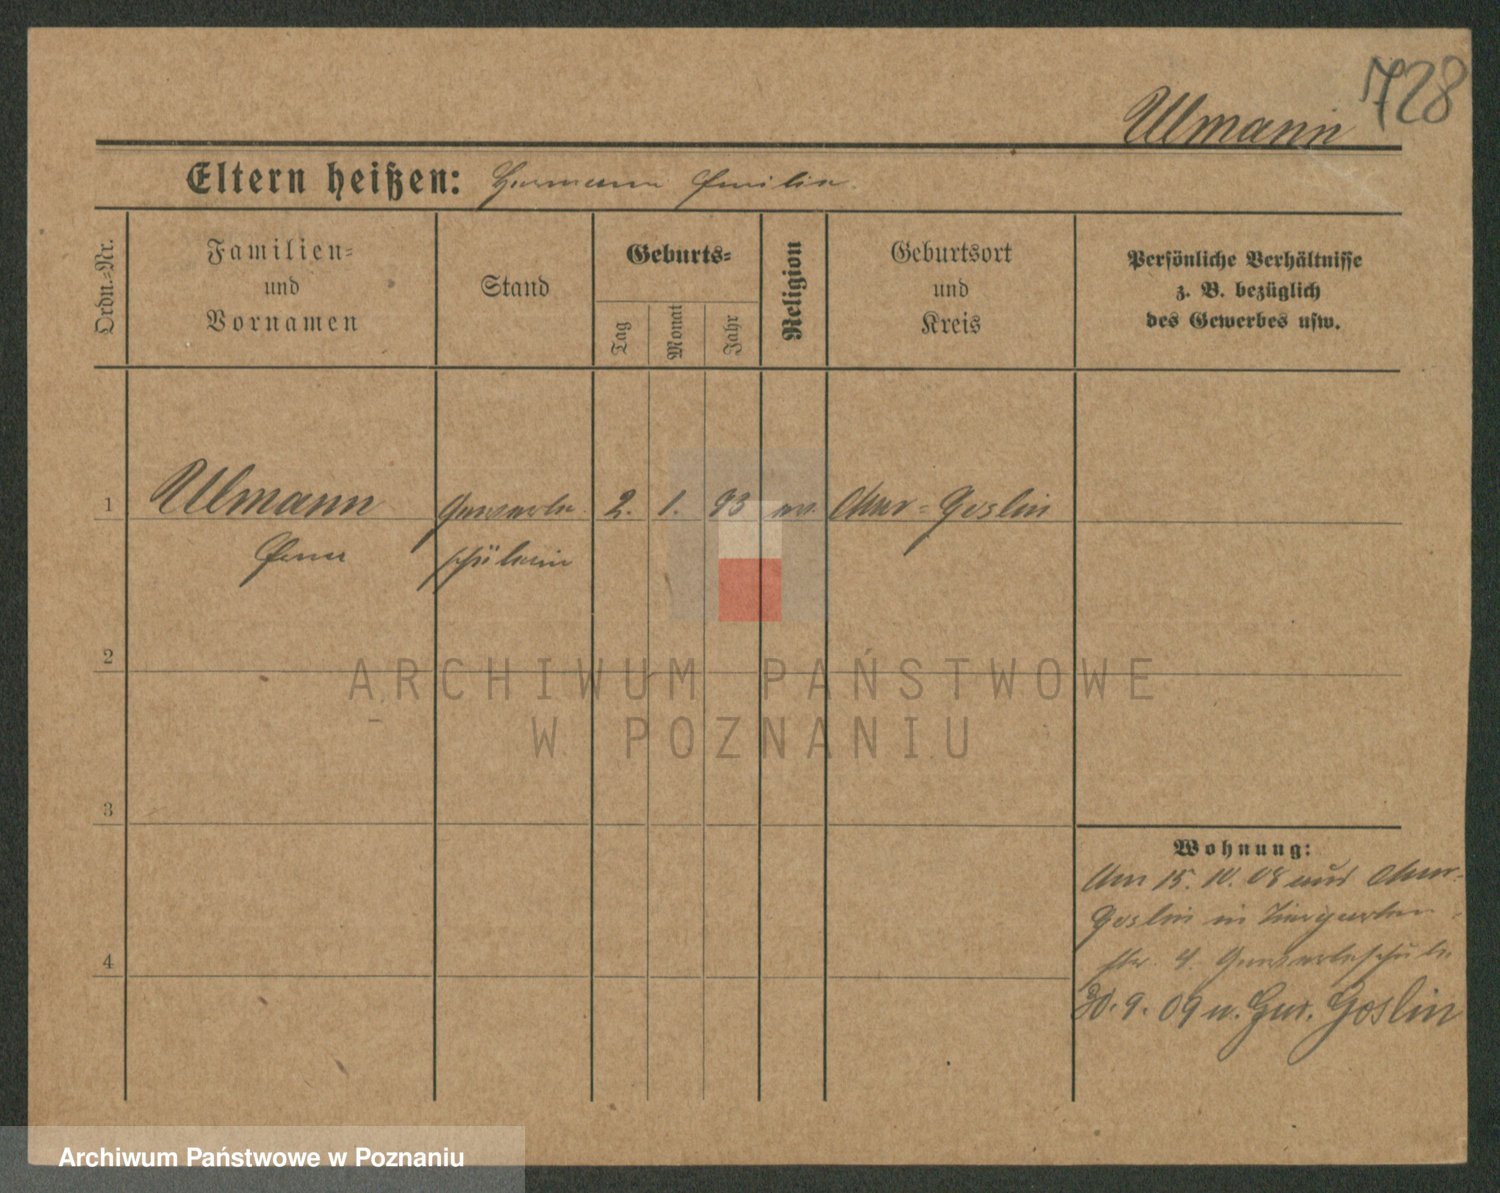 728
Ulmann
Eltern heißen: Hermann Emilie.
Ordn.-Nr.
Familien-
und
Vornamen
Stand
Geburts-
Tag
Monat
Jahr
Religion
Geburtsort
und
Kreis
Persönliche Verhältnisse
z. B. bezüglich
des Gewerbes usw.
1 Ulmann Gewerbe 2. 1. 93 ev. Mur-Goslin
Erna schülerin
2
3
4
ARCHIWUM PAŃSTWOWE
W POZNANIU
Wohnung:
15. 10. 08 aus Mur-
Goslin in Tiergarten-
str. 4. Gewerbeschule
30. 9. 09 n. Goslin
Archiwum Państwowe w Poznaniu